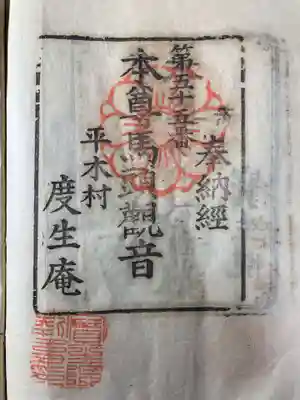 奉納經
第五十五番
本尊馬頭觀音
平木村
度生庵